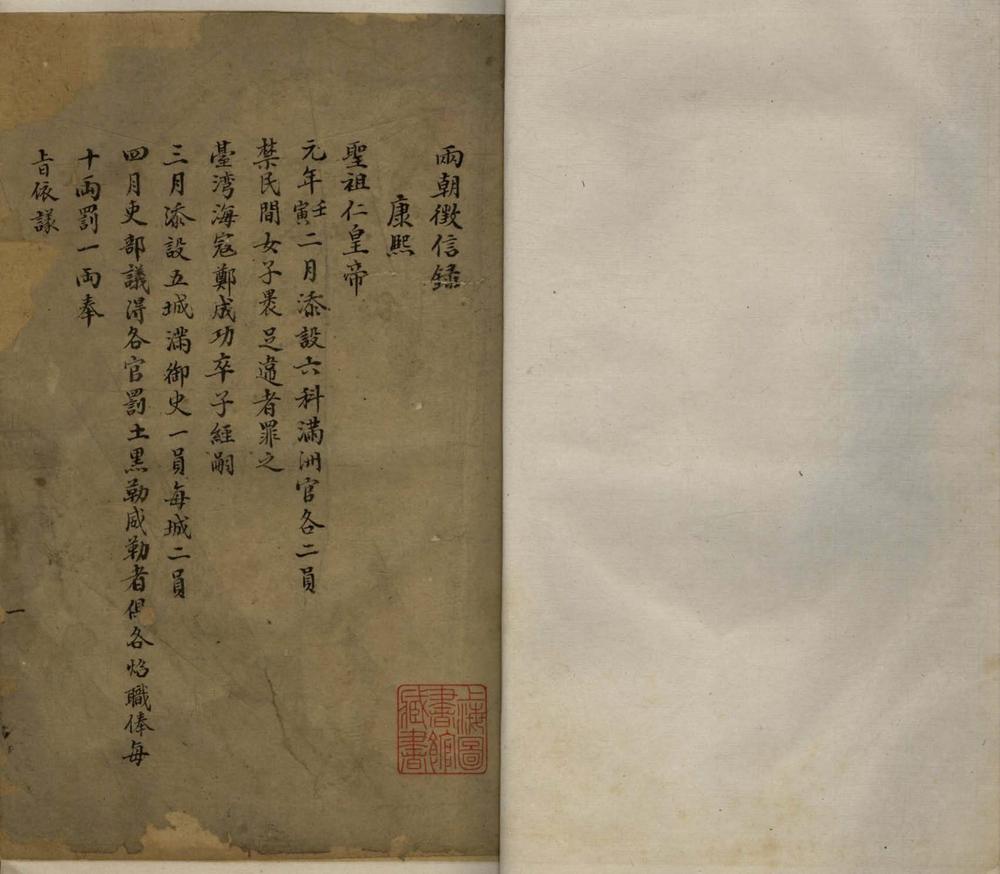 兩朝徵信錄
康熙
聖祖仁皇帝
元年壬寅二月添設六科滿洲官各二員
禁民間女子裹足違者罪之
臺湾海寇鄭成功卒子經嗣
三月添設五城滿御史一員每城二員
四月吏部議得各官罰土黑勒威勒者俱各炤職俸每
十兩罰一兩奉
旨依議
一
上海圖書館藏書